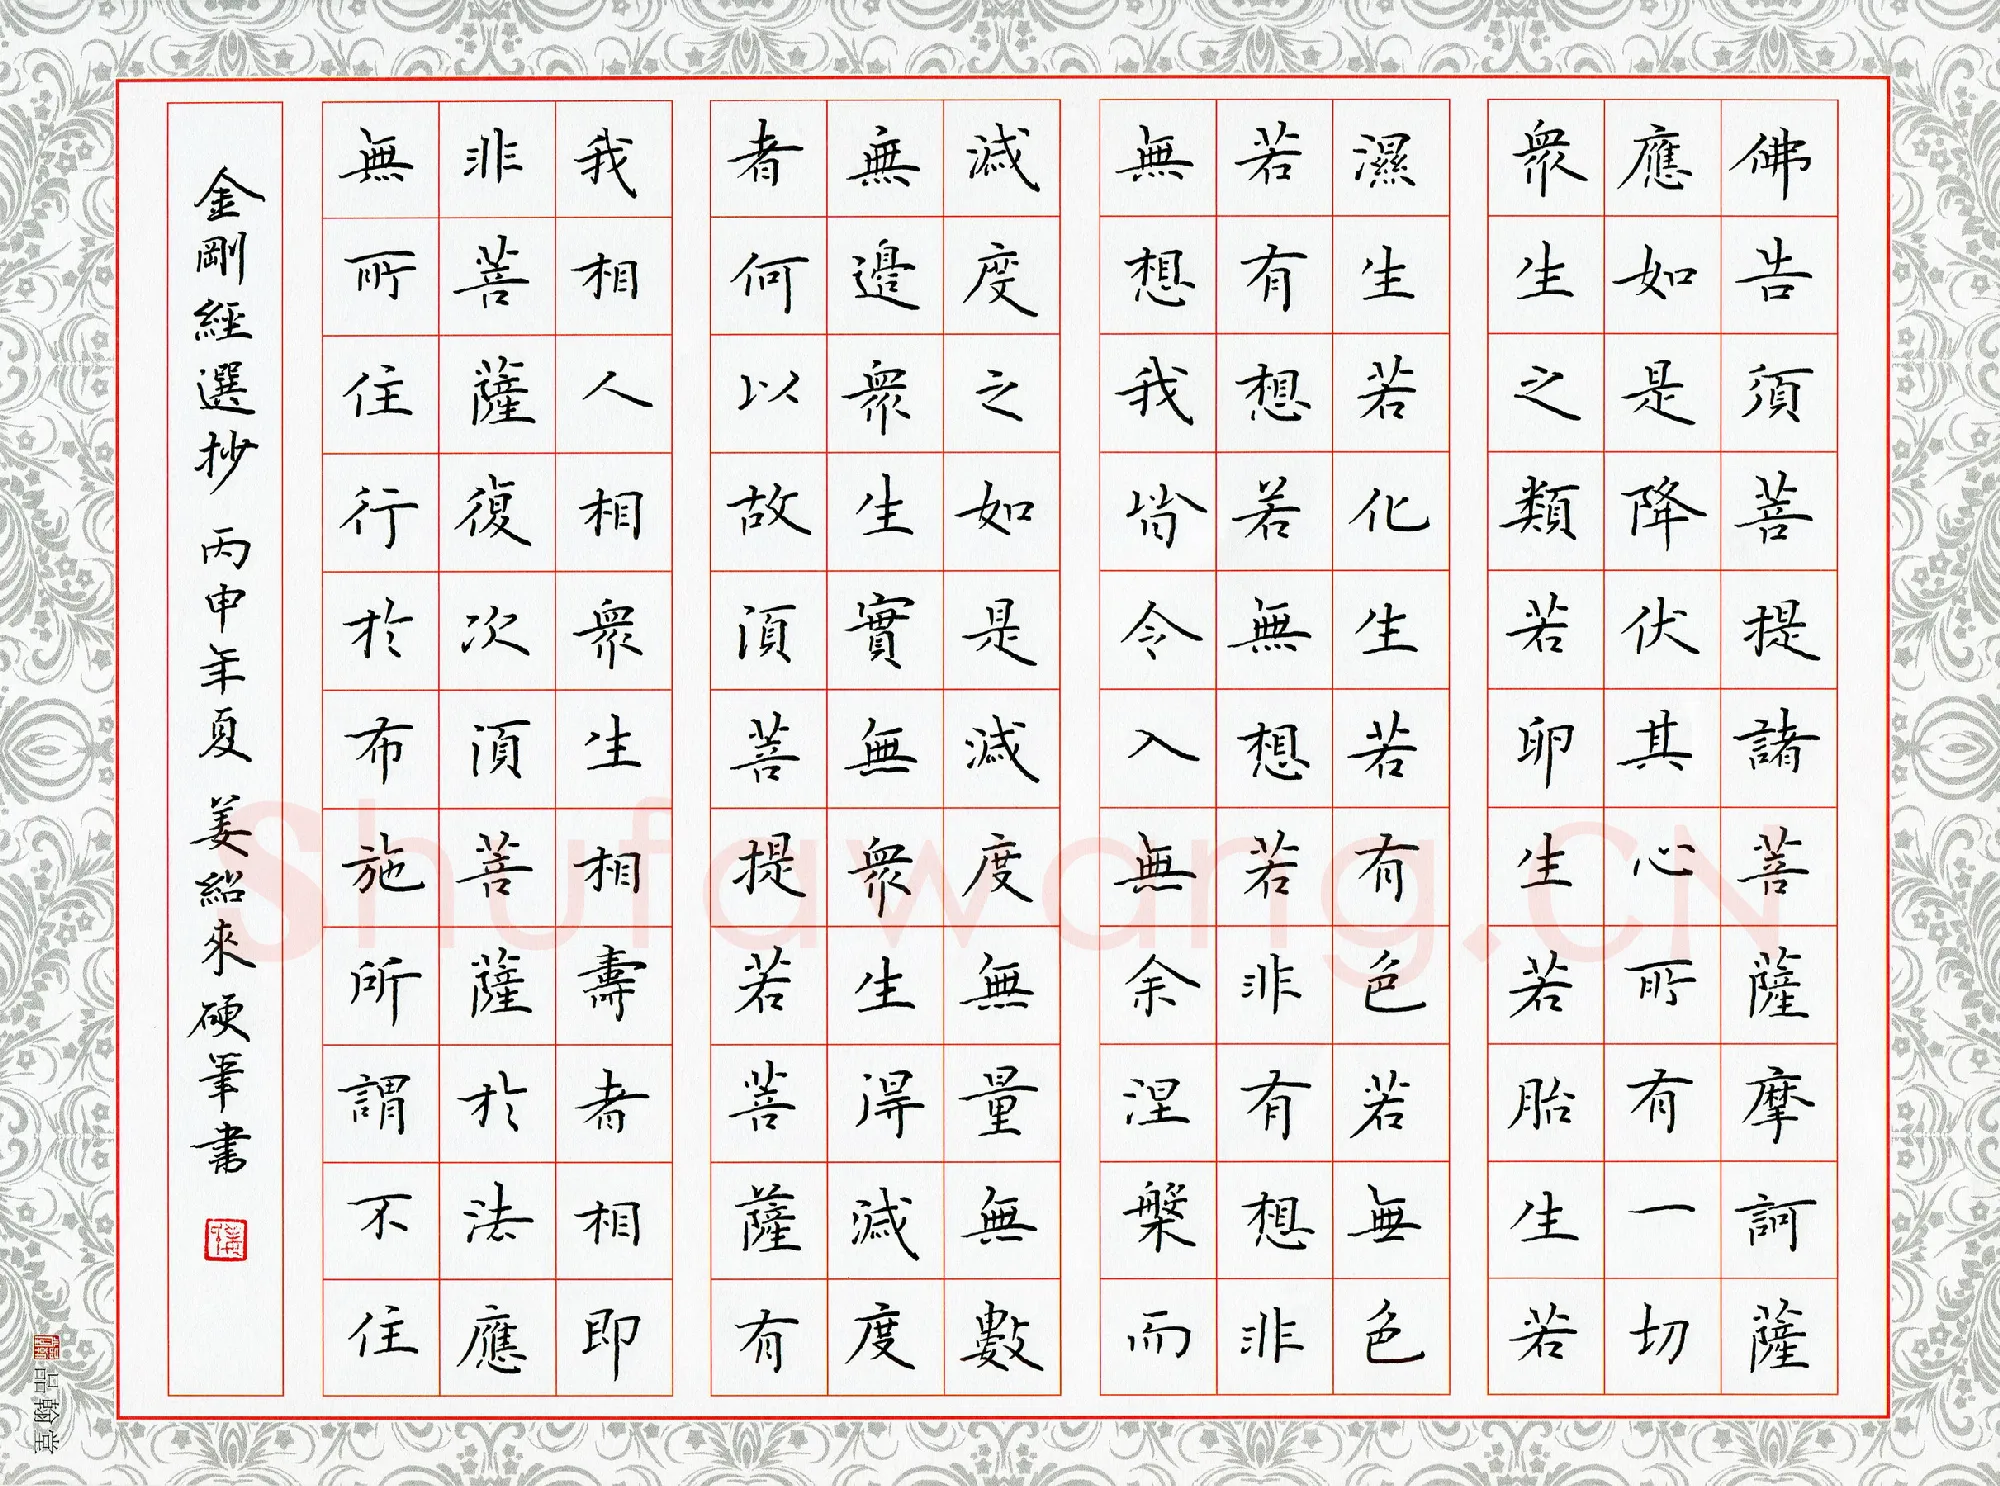 佛告須菩提諸菩薩摩訶薩
應如是降伏其心所有一切
衆生之類若卵生若胎生若
濕生若化生若有色若無色
若有想若無想若非有想非
無想我皆令入無余涅槃而
滅度之如是滅度無量無數
無邊衆生實無衆生得滅度
者何以故須菩提若菩薩有
我相人相衆生相壽者相即
非菩薩復次須菩薩於法應
無所住行於布施所謂不住
金剛經選抄 丙申年夏 姜紹來硬筆書
品翰堂
Shufawang.CN